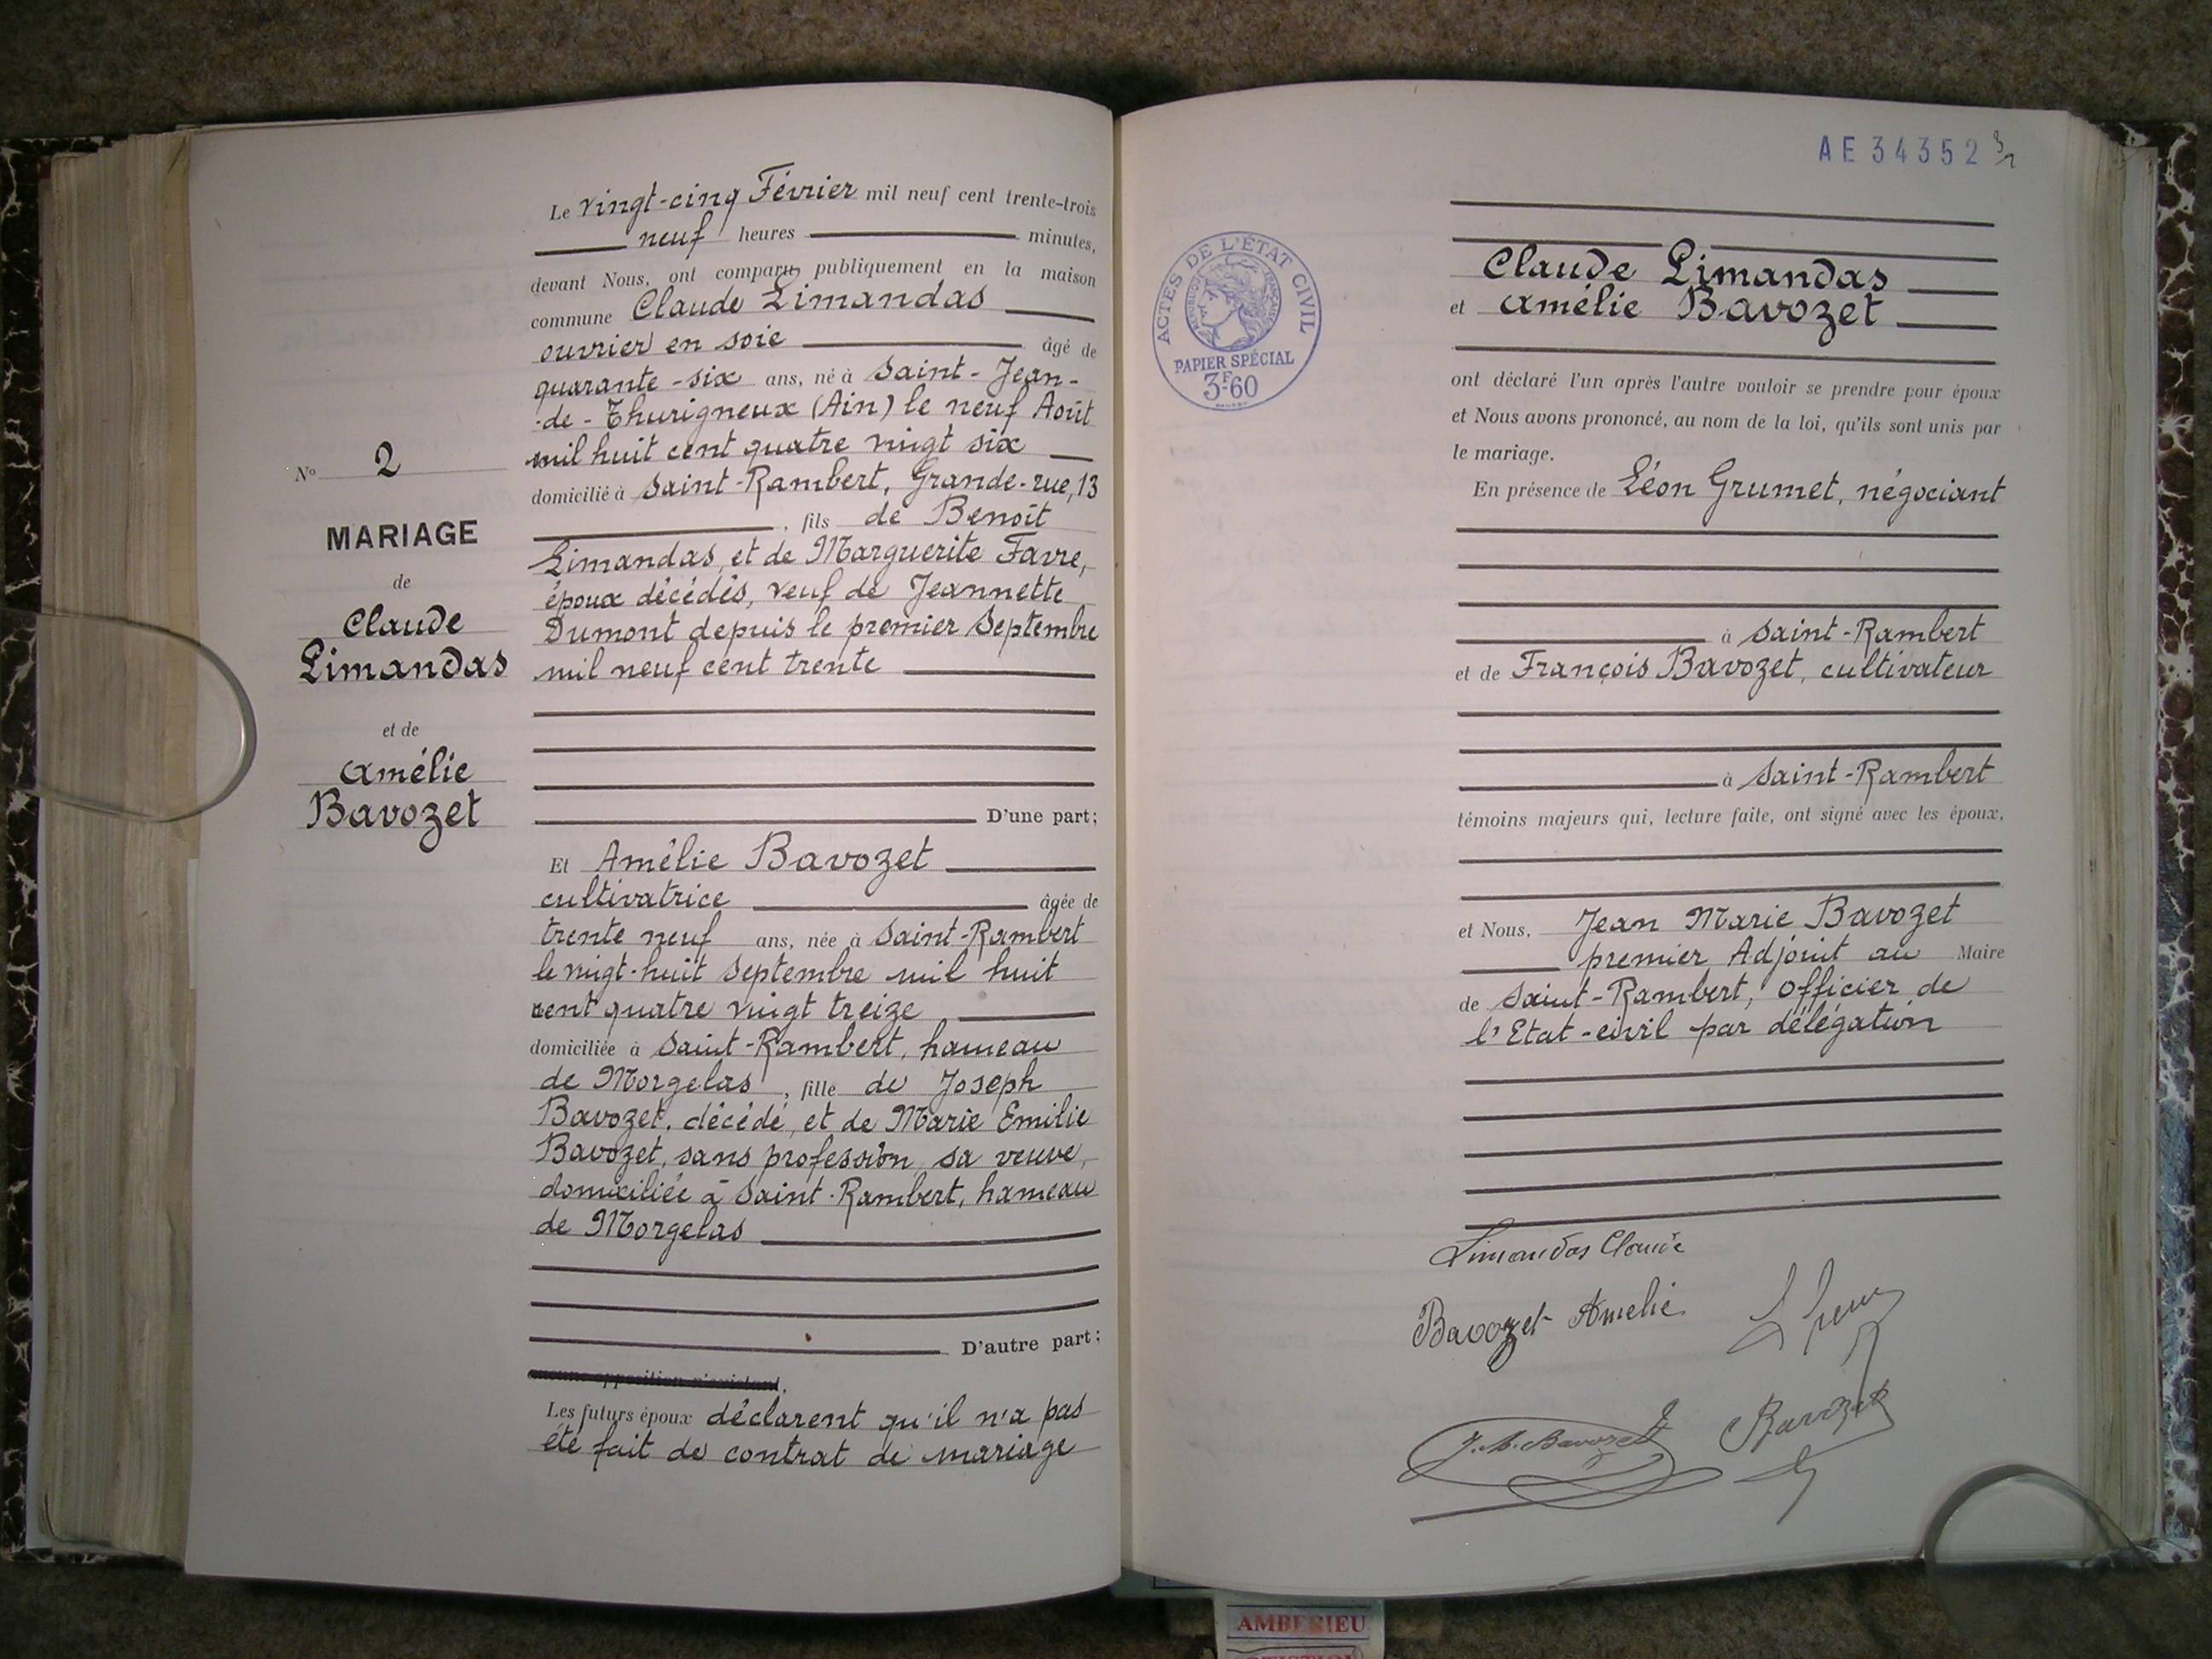 Le vingt-cinq Février mil neuf cent trente-trois
neuf heures minutes,
devant Nous, ont comparu publiquement en la maison
commune Claude Limandas
ouvrier en soie âgé de
quarante-six ans, né à Saint-Jean-
-de-Thurigneux (Ain) le neuf Août
mil huit cent quatre vingt six
domicilié à Saint-Rambert, Grande-rue, 13
, fils de Benoît
Limandas, et de Marguerite Favre,
époux décédés, veuf de Jeannette
Dumont depuis le premier Septembre
mil neuf cent trente
D'une part;
Et Amélie Bavozet
cultivatrice âgée de
trente neuf ans, née à Saint-Rambert
le vingt-huit Septembre mil huit
cent quatre vingt treize
domiciliée à Saint-Rambert, hameau
de Morgelas, fille de Joseph
Bavozet, décédé, et de Marie Emilie
Bavozet, sans profession, sa veuve,
domiciliée à Saint-Rambert, hameau
de Morgelas
D'autre part;
Les futurs époux déclarent qu'il n'a pas
été fait de contrat de mariage
No 2
MARIAGE
de
Claude
Limandas
et de
Amélie
Bavozet
AE34352
ACTES DE L'ÉTAT CIVIL
PAPIER SPÉCIAL
3F60
Claude Limandas
et Amélie Bavozet
ont déclaré l'un après l'autre vouloir se prendre pour époux
et Nous avons prononcé, au nom de la loi, qu'ils sont unis par
le mariage.
En présence de Léon Grumet, négociant
à Saint-Rambert
et de François Bavozet, cultivateur
à Saint-Rambert
témoins majeurs qui, lecture faite, ont signé avec les époux,
et Nous, Jean Marie Bavozet
premier Adjoint au Maire
de Saint-Rambert, officier de
l'Etat-civil par délégation
Limandas Claude
Bavozet Amelie
J. M. Bavozet
Bavozet
AMBERIEU